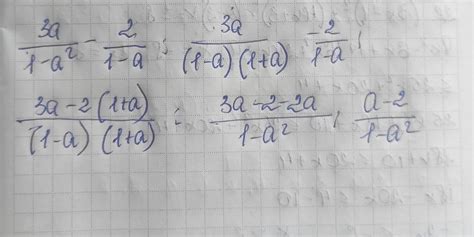 3a/(1-a²) - 2/(1-a) ; 3a/((1-a)(1+a)) -2/(1-a) ;
(3a-2(1+a))/((1-a)(1+a)) : (3a-2-2a)/(1-a²) ; (a-2)/(1-a²)